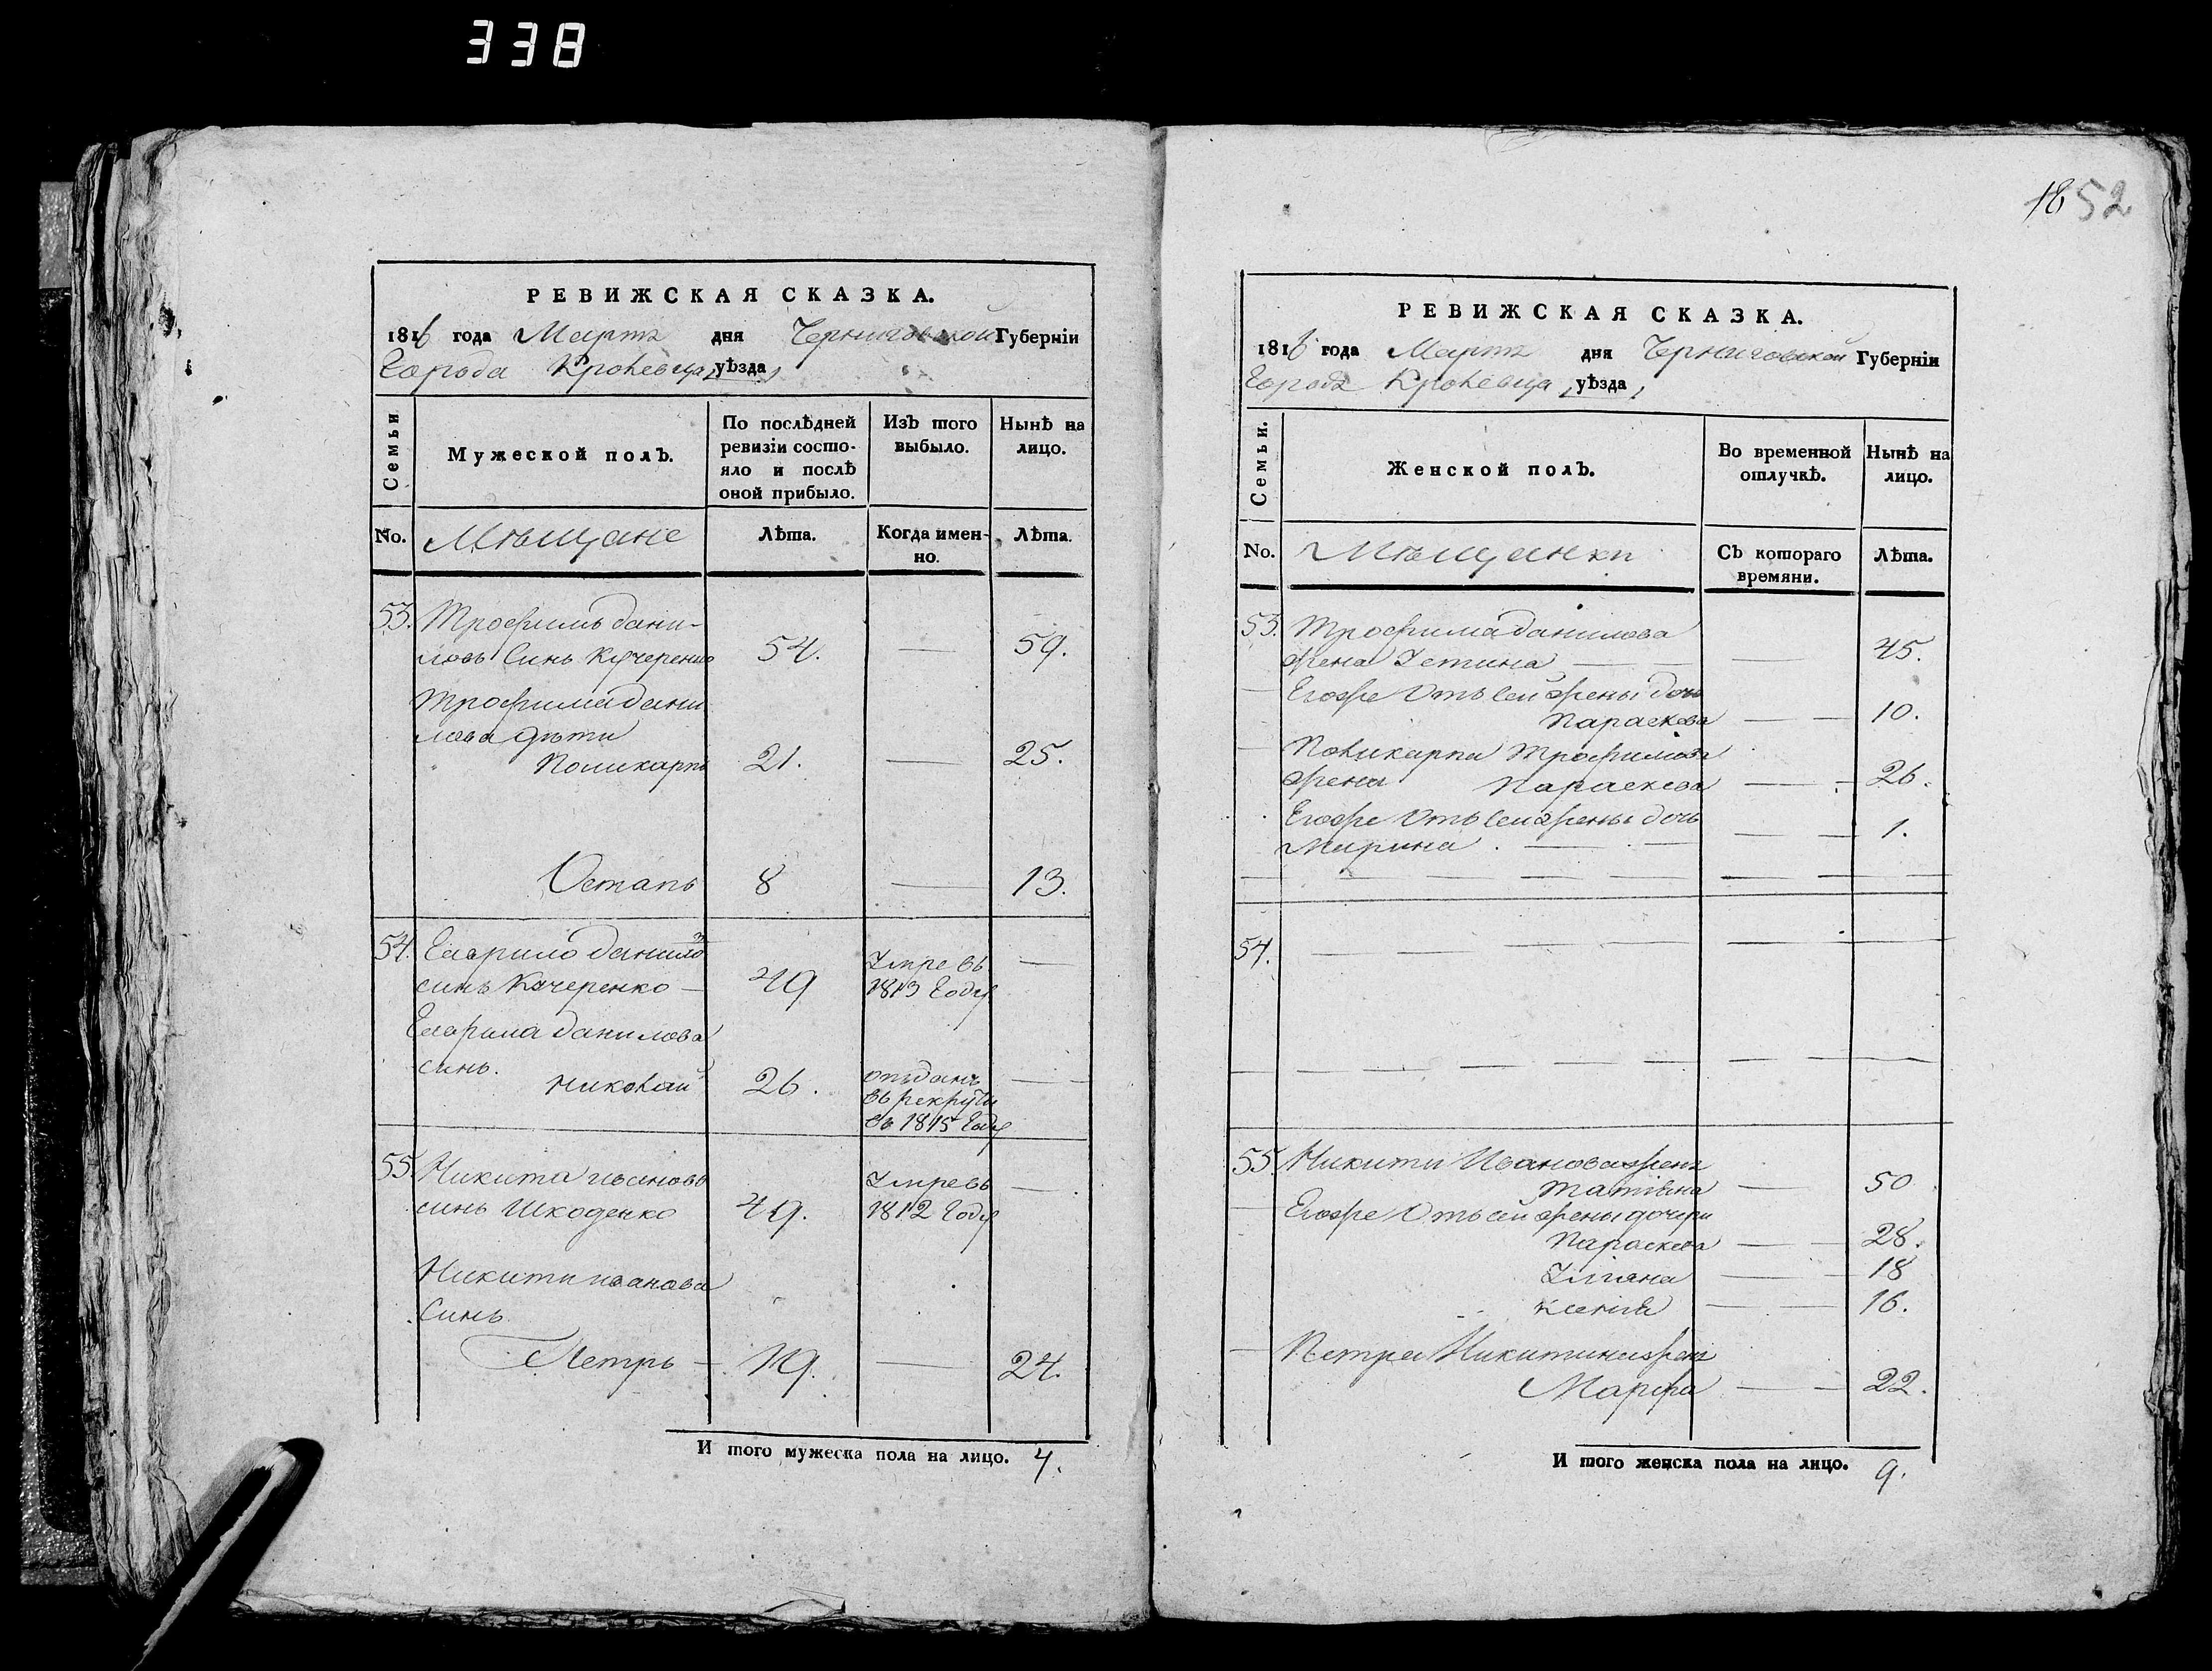 338
РЕВИЖСКАЯ СКАЗКА.
1816 года Мартъ дня Черниговской Губерніи
Города Кролевца уѣзда
Семьи
Мужеской полъ.
По послѣдней ревизіи состо-
яло и послѣ
оной прибыло.
Изъ того
выбыло.
Нынѣ на
лицо.
No. Мѣщане
Лѣта.
Когда имен-
но.
Лѣта.
53. Трофимъ Дани-
ловъ Синъ Кучеренко 54. — 59.
Трофима Дани
лова дѣти
Поликарпъ 21. — 25.
Остапъ 8 — 13.
54. Гаврило Данило
синъ Кучеренко — 49 Умре въ
1813 Году —
Гаврила Данилова
синъ.
Николай 26. отъданъ
въ рекруты
въ 1815 Году —
55. Никита ивановъ
синъ Шкоденко 49. Умре въ
1812 Году —
Никити иванова
Синъ
Петръ — 19. — 24.
И того мужеска пола на лицо. 4.
1852
РЕВИЖСКАЯ СКАЗКА.
1816 года Мартъ дня Черниговской Губерніи
Города Кролевца уѣзда
Семьи.
Женской полъ.
Во временной
отлучкѣ.
Нынѣ на
лицо.
No. Мѣщанки
Съ котораго
времяни.
Лѣта.
53. Трофима данилова
жена Устина — 45.
Егоже Отъ сей жены дочь
Параскева — 10.
Поликарпа Трофимова
жена Параскева — 26.
Егоже Отъ сей жены дочь
Марина — 1.
54.
55. Никити Иванова жена
Татіяна — 50
Егоже Отъ сей жены дочери
Параскева — 28.
Уліяна — 18
Ксенія — 16.
Петра Никитина жена
Марфа — 22.
И того женска пола на лицо. 9.